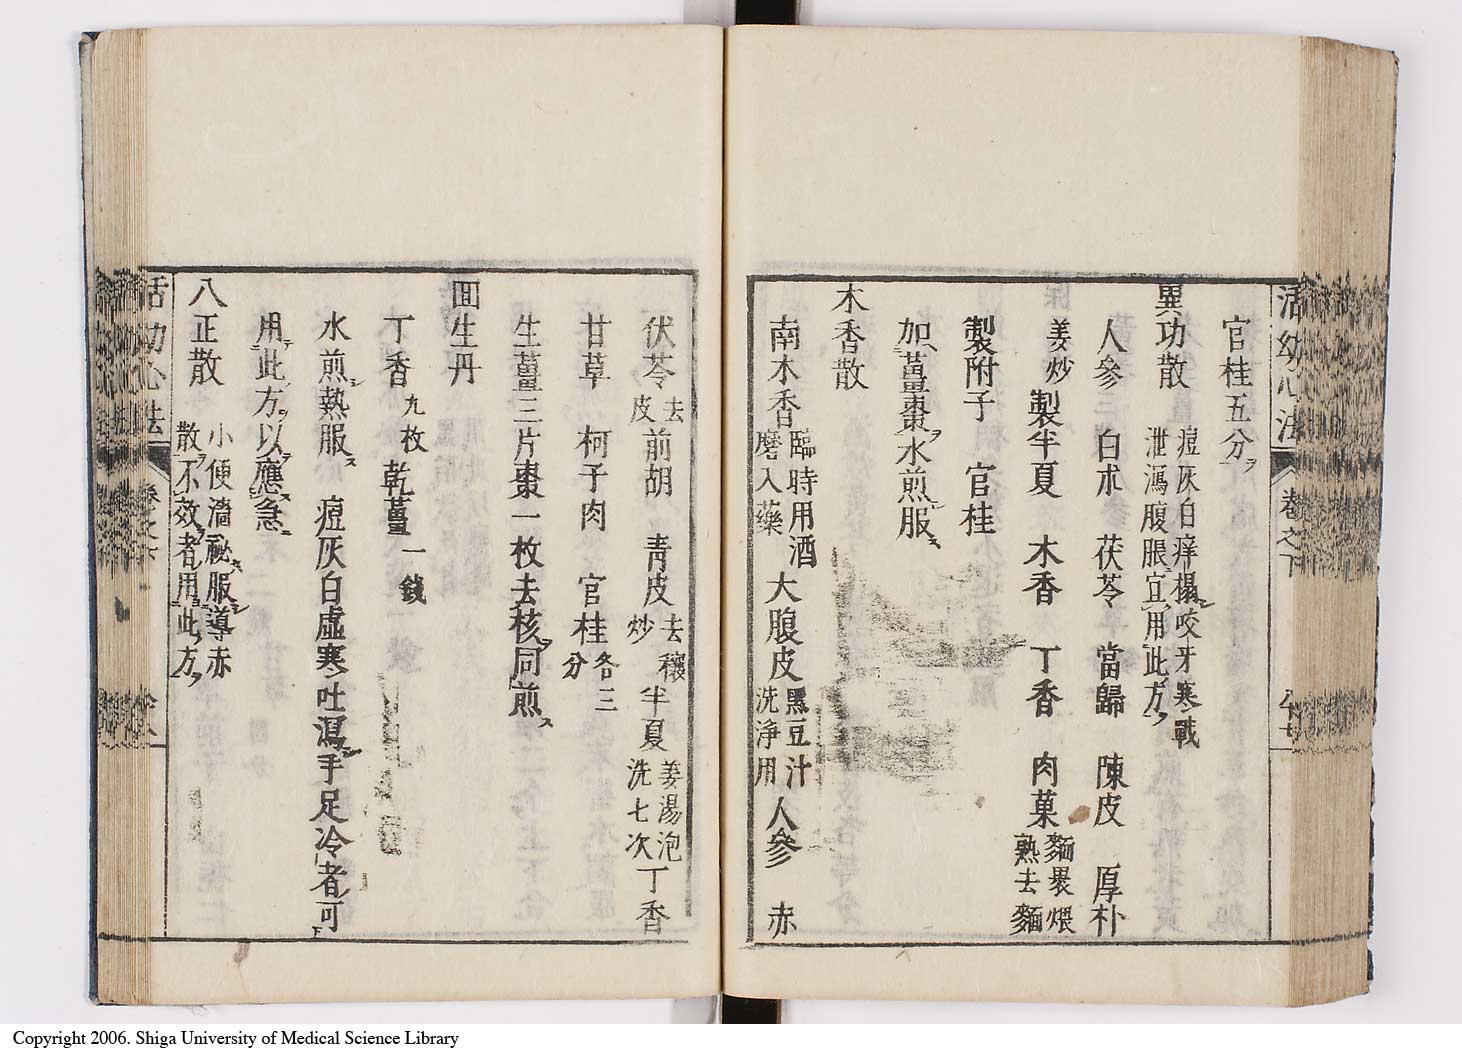 活幼心法 卷之下
官桂五分ヲ
異功散 痘灰白痒塌咬牙寒戰
泄瀉腹脹宜用此方ヲ
人參 白朮 茯苓 當歸 陳皮 厚朴
姜炒 製半夏 木香 丁香 肉菓 麵裹煨
熟去麵
製附子 官桂
加薑棗ヲ水煎服ス
木香散
南木香 臨時用酒
磨入藥 大腹皮 黑豆汁
洗淨用 人參 赤
茯苓 去
皮 前胡 靑皮 去穰
炒 半夏 姜湯泡
洗七次 丁香
甘草 柯子肉 官桂 各三
分
生薑三片棗一枚去核ヲ同煎ス
囬生丹
丁香 九枚 乾薑 一錢
水煎熱服ス 痘灰白虛寒吐瀉手足冷者可
用此方ヲ以應急ニ
八正散 小便濇祕服導赤
散ヲ不效者用此方ヲ
活幼心法
Copyright 2006. Shiga University of Medical Science Library